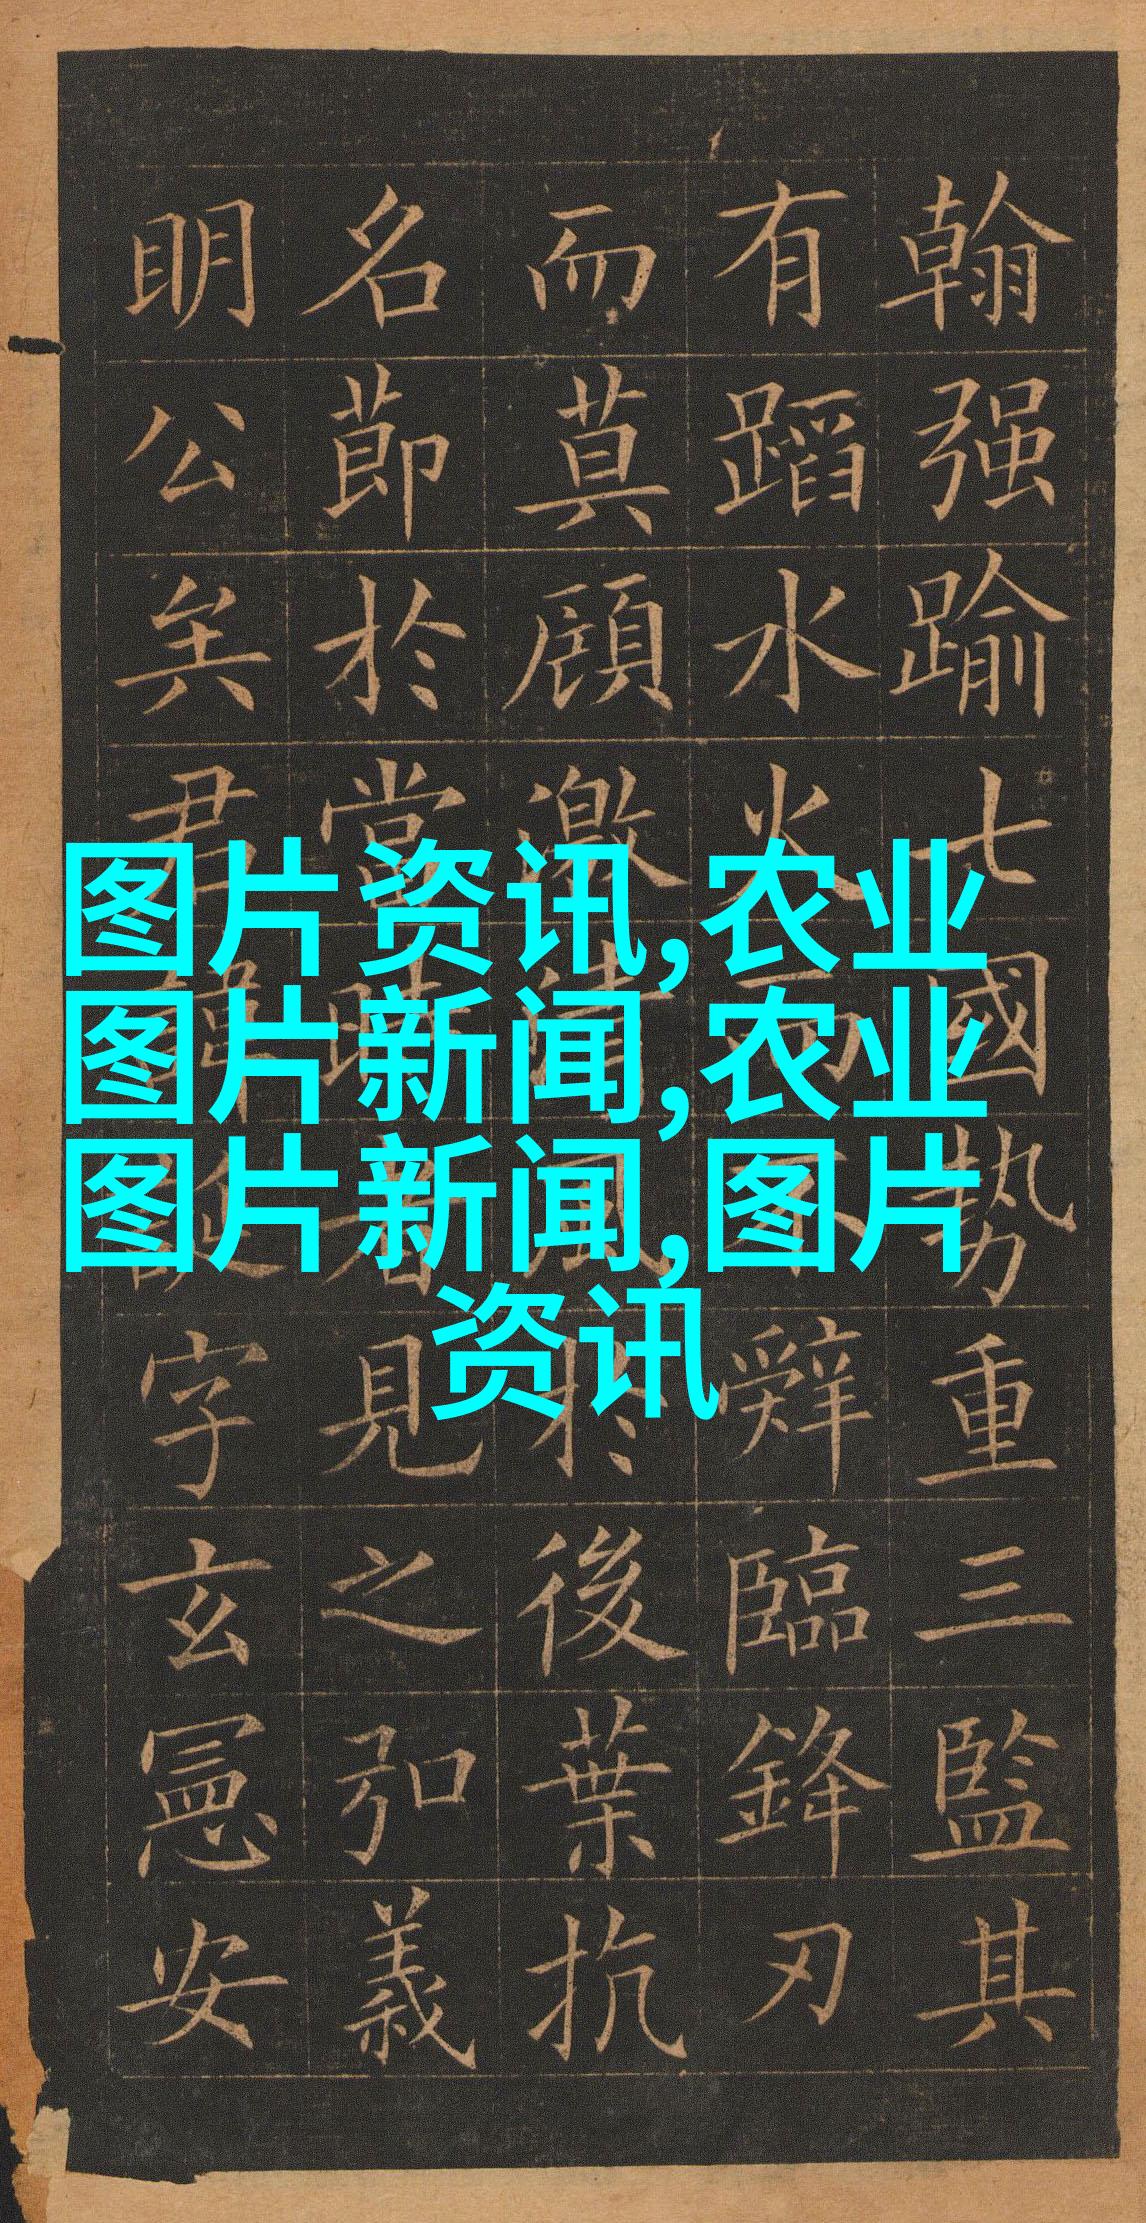 翰强踰七國勢重三監其
有蹈水火而不辭臨鋒刃
而莫顧激清風於後葉抗
名莭於當時者見之弘義
明公矣君諱誕字玄憲安
图片资讯,农业
图片新闻,农业
图片新闻,图片
资讯